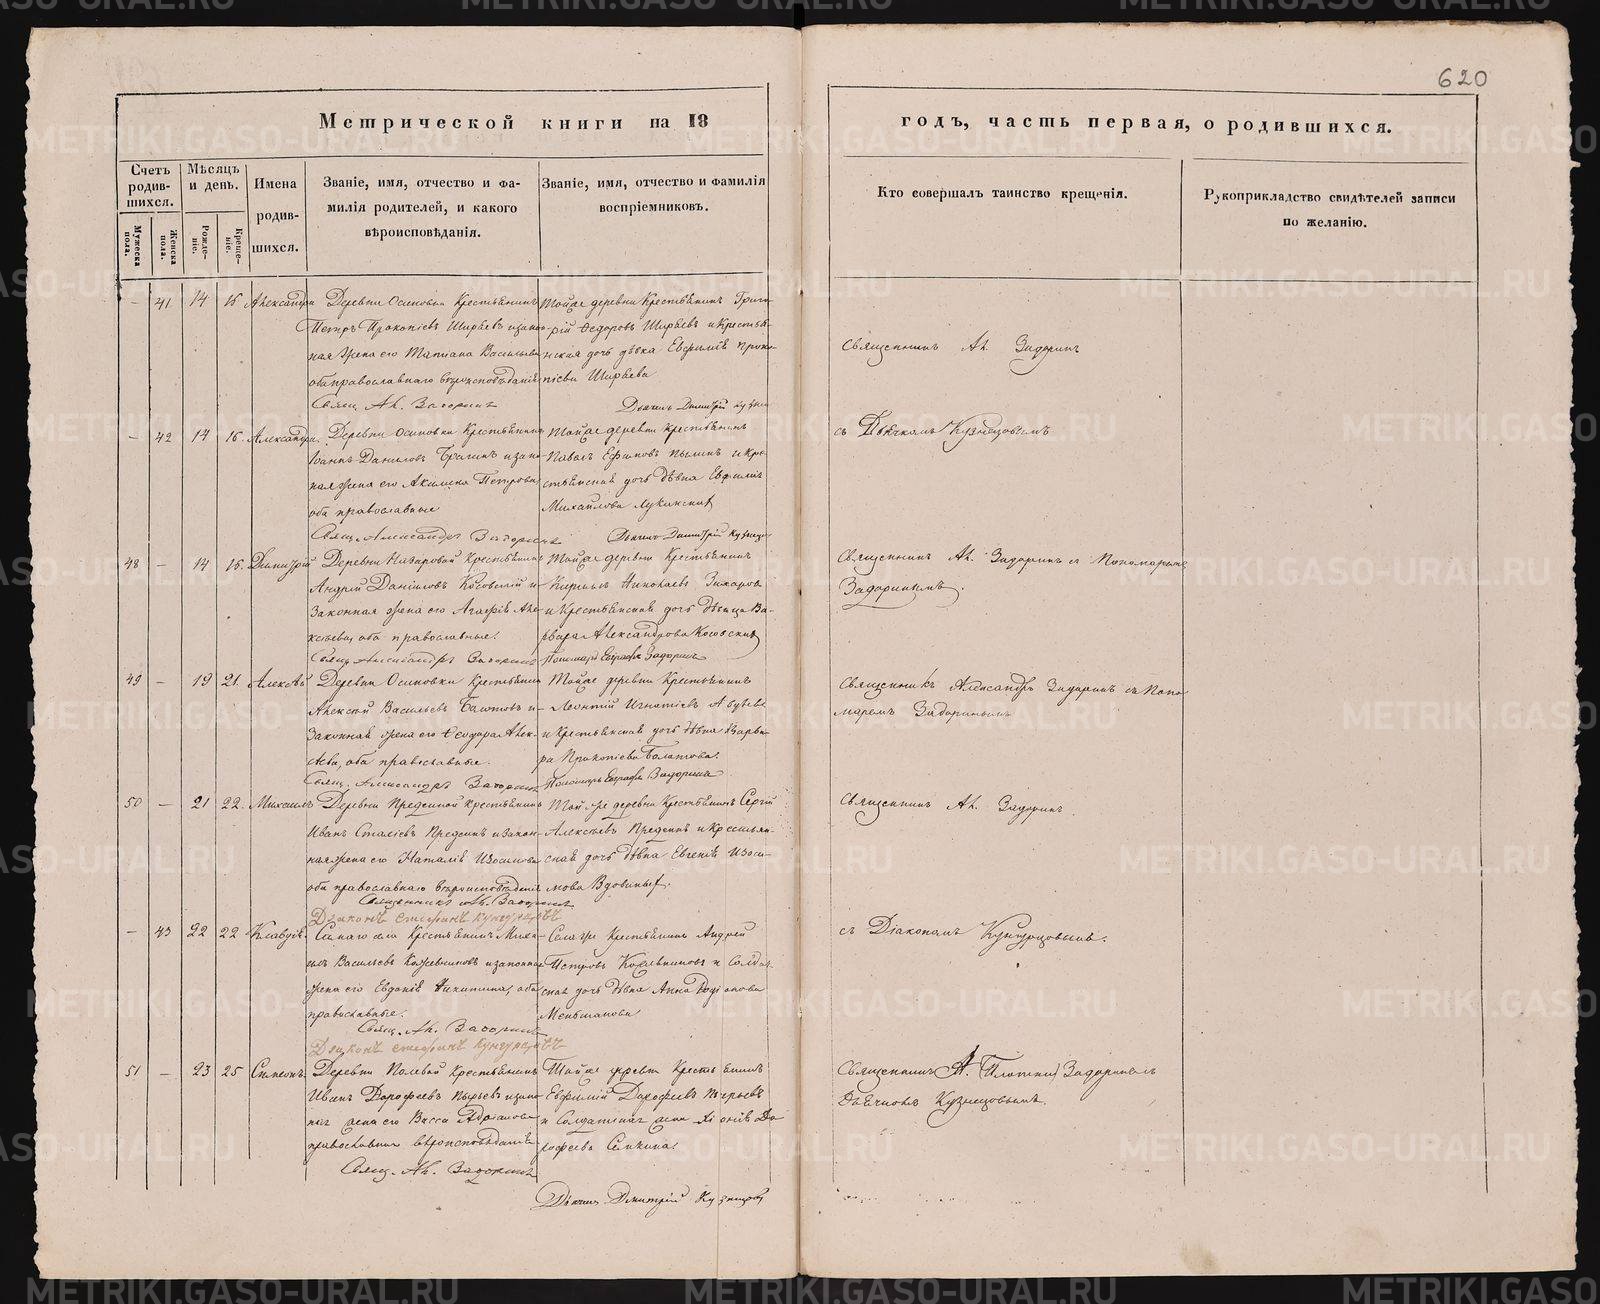 620
Метрической книги на 18
годъ, часть первая, о родившихся.
Счетъ родив-шихся.
Мужеска пола.
Женска пола.
Мѣсяцъ и день.
Рожде-ніе.
Креще-ніе.
Имена
родив-
шихся.
Званіе, имя, отчество и фа-
милія родителей, и какого
вѣроисповѣданія.
Званіе, имя, отчество и фамилія
воспріемниковъ.
Кто совершалъ таинство крещенія.
Рукоприкладство свидѣтелей записи
по желанію.
— 41 14 15 Александра
Деревни Осиновки Крестьянинъ
Петръ Прокопіевъ Ширяевъ и закон-
ная жена его Татіана Васильева
оба православнаго вѣроисповѣданія
Свящ. Ал. Задоринъ
Тойже деревни Крестьянинъ Григо-
рій Ѳедоровъ Ширяевъ и крестья-
нская дочь дѣвка Евфимія Проко-
піева Ширяева
Дьячекъ Димитрій
Священникъ Ал. Задоринъ
— 42 14 15 Александра
Деревни Осиновки Крестьянинъ
Іоаннъ Даниловъ Брагинъ и закон-
ная жена его Акилина Петрова
оба православные
Свящ. Александръ Задоринъ
Тойже деревни крестьянинъ
Павелъ Ефимовъ и кре-
стьянская дочь дѣвка Евфимія
Михайлова
Дьячекъ Димитрій
съ Дьячкомъ Кузнецовымъ
48 — 14 15 Димитрій
Деревни Крестьянинъ
Андрей Даниловъ Косовскій и
Законная жена его Агафія Але-
ксѣева, оба православные.
Свящ. Александръ Задоринъ
Тойже деревни Крестьянинъ
Кирилъ Николаевъ Захаровъ
и Крестьянская дочь дѣвица Ва-
рвара Александрова Косовскихъ
Пономарь Евграфъ Задоринъ
Священникъ Ал. Задоринъ съ Пономаремъ
Задоринымъ.
49 — 19 21 Алексѣй
Деревни Осиновки Крестьянинъ
Алексѣй Васильевъ и
Законная жена его Ѳеодора Алек-
сѣева, оба православные.
Свящ. Александръ Задоринъ
Тойже деревни Крестьянинъ
Леонтій Игнатіевъ
и Крестьянская дочь дѣвка Варва-
ра Прокопіева
Пономарь Евграфъ Задоринъ
Священникъ Александръ Задоринъ съ Поно-
маремъ Задоринымъ
50 — 21 22 Михаилъ
Деревни Предеиной Крестьянинъ
Иванъ Предеинъ и закон-
ная жена его Наталія Изосимова
оба православнаго вѣроисповѣданія
Священникъ Ал. Задоринъ
Діаконъ Стефанъ Кунгурцевъ
Той же деревни Крестьянинъ Сергій
Алексѣевъ Предеинъ и Крестьян-
ская дочь дѣвка Евгенія Изоси-
мова Вдовиныхъ.
Священникъ Ал. Задоринъ
— 43 22 22 Клавдія.
Сего села Крестьянинъ Миха-
илъ Васильевъ Кожевниковъ и законная
жена его Евдокія Никитина, оба
православные.
Свящ. Ал. Задоринъ
Діаконъ Стефанъ Кунгурцевъ
Села же Крестьянинъ Андрей
Петровъ и Солдат-
ская дочь дѣвка Анна Родіонова
Меньшакова
съ Діакономъ Кунгурцовымъ.
51 — 23 25 Симеонъ.
Деревни Полевой Крестьянинъ
Иванъ Дорофеевъ и закон-
ная жена его Васса Адріанова
православнаго вѣроисповѣданія
Свящ. Ал. Задоринъ
Тойже деревни Крестьянинъ
Евфимій Дорофеевъ
и Солдатская жена До-
рофеева
Дьячекъ Дмитрій Кузнецовъ
Священникъ А. Задоринъ съ
Дьячкомъ Кузнецовымъ.
METRIKI.GASO-URAL.RU